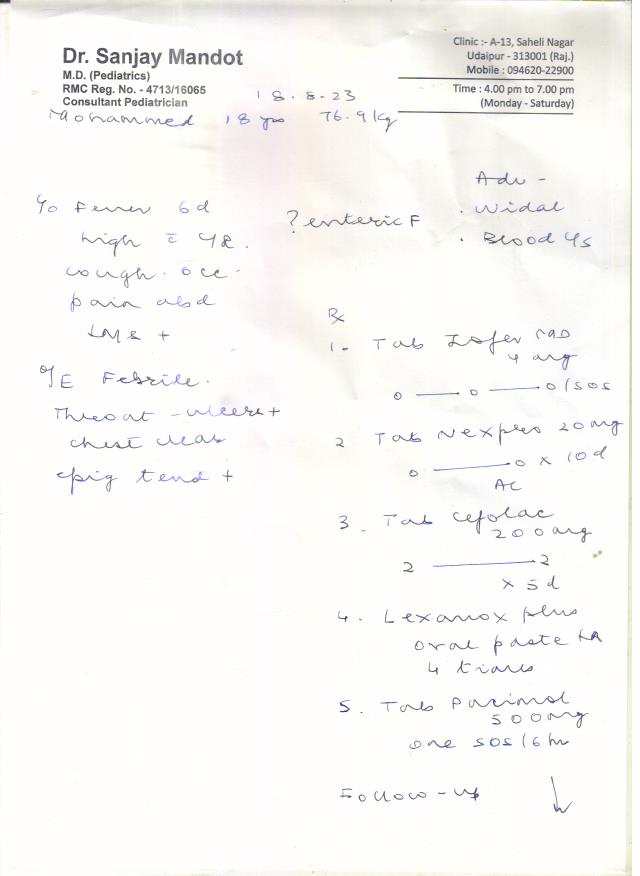 Dr. Sanjay Mandot
M.D. (Pediatrics)
RMC Reg. No. - 4713/16065
Consultant Pediatrician
Clinic :- A-13, Saheli Nagar
Udaipur - 313001 (Raj.)
Mobile : 094620-22900
Time : 4.00 pm to 7.00 pm
(Monday - Saturday)
18.8.23
Mohammed 18 yrs 76.9 kg
C/o Fever 6d
high c
cough. occ.
pain abd
+
O/E Febrile.
Throat - ulcers +
chest clear
epig tend +
? enteric F
Adv -
. Widal
. Blood C/s
Rx
1. Tab
4 mg
0 — 0 — 0/SOS
2 Tab Nexpro 20 mg
0 — 0 x 10d
AC
3. Tab Cefolac
200 mg
2 — 2
x 5d
4. Lexanox plus
oral paste LA
4 times
5. Tab Pacimol
500 mg
one SOS/6 hr
Follow-up